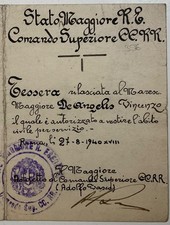 Stato Maggiore R. E.
Comando Superiore CC.RR.
Tessera rilasciata al Maresc.
Maggiore De Angelis Vincenzo
il quale è autorizzato a vestire l'abito
civile per servizio.-
27-8-1940 XVIII
Il Maggiore
Comando Superiore CC.RR.
(Adolfo